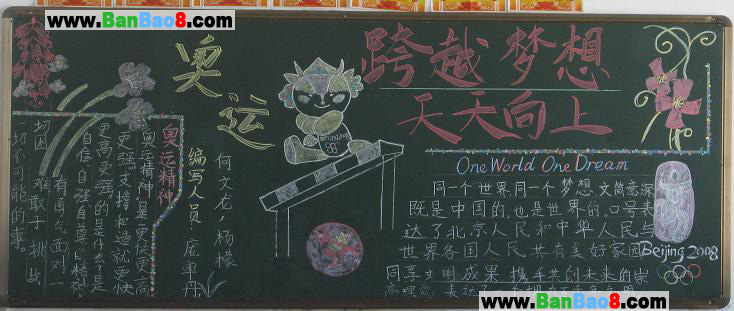 www.BanBao8.com
www.BanBao8.com
跨越梦想
天天向上
奥运
One World One Dream
同一个世界,同一个梦想.文简意深
既是中国的,也是世界的,口号表
达了北京人民和中华人民与
世界各国人民共有美好家园
同享文明成果,携手共创未来的崇
高理想
表达了一个拥有五千年文明
Beijing 2008
何文龙,杨檬
编写人员:庞单丹
奥运精神
奥运精神是"更快更高
更强".支撑和造就更快
更高更强的是什么?是
自信、自强、自尊的精神.
有勇气面对一
切困难敢于挑战一
切不可能的事。
www.BanBao8.com